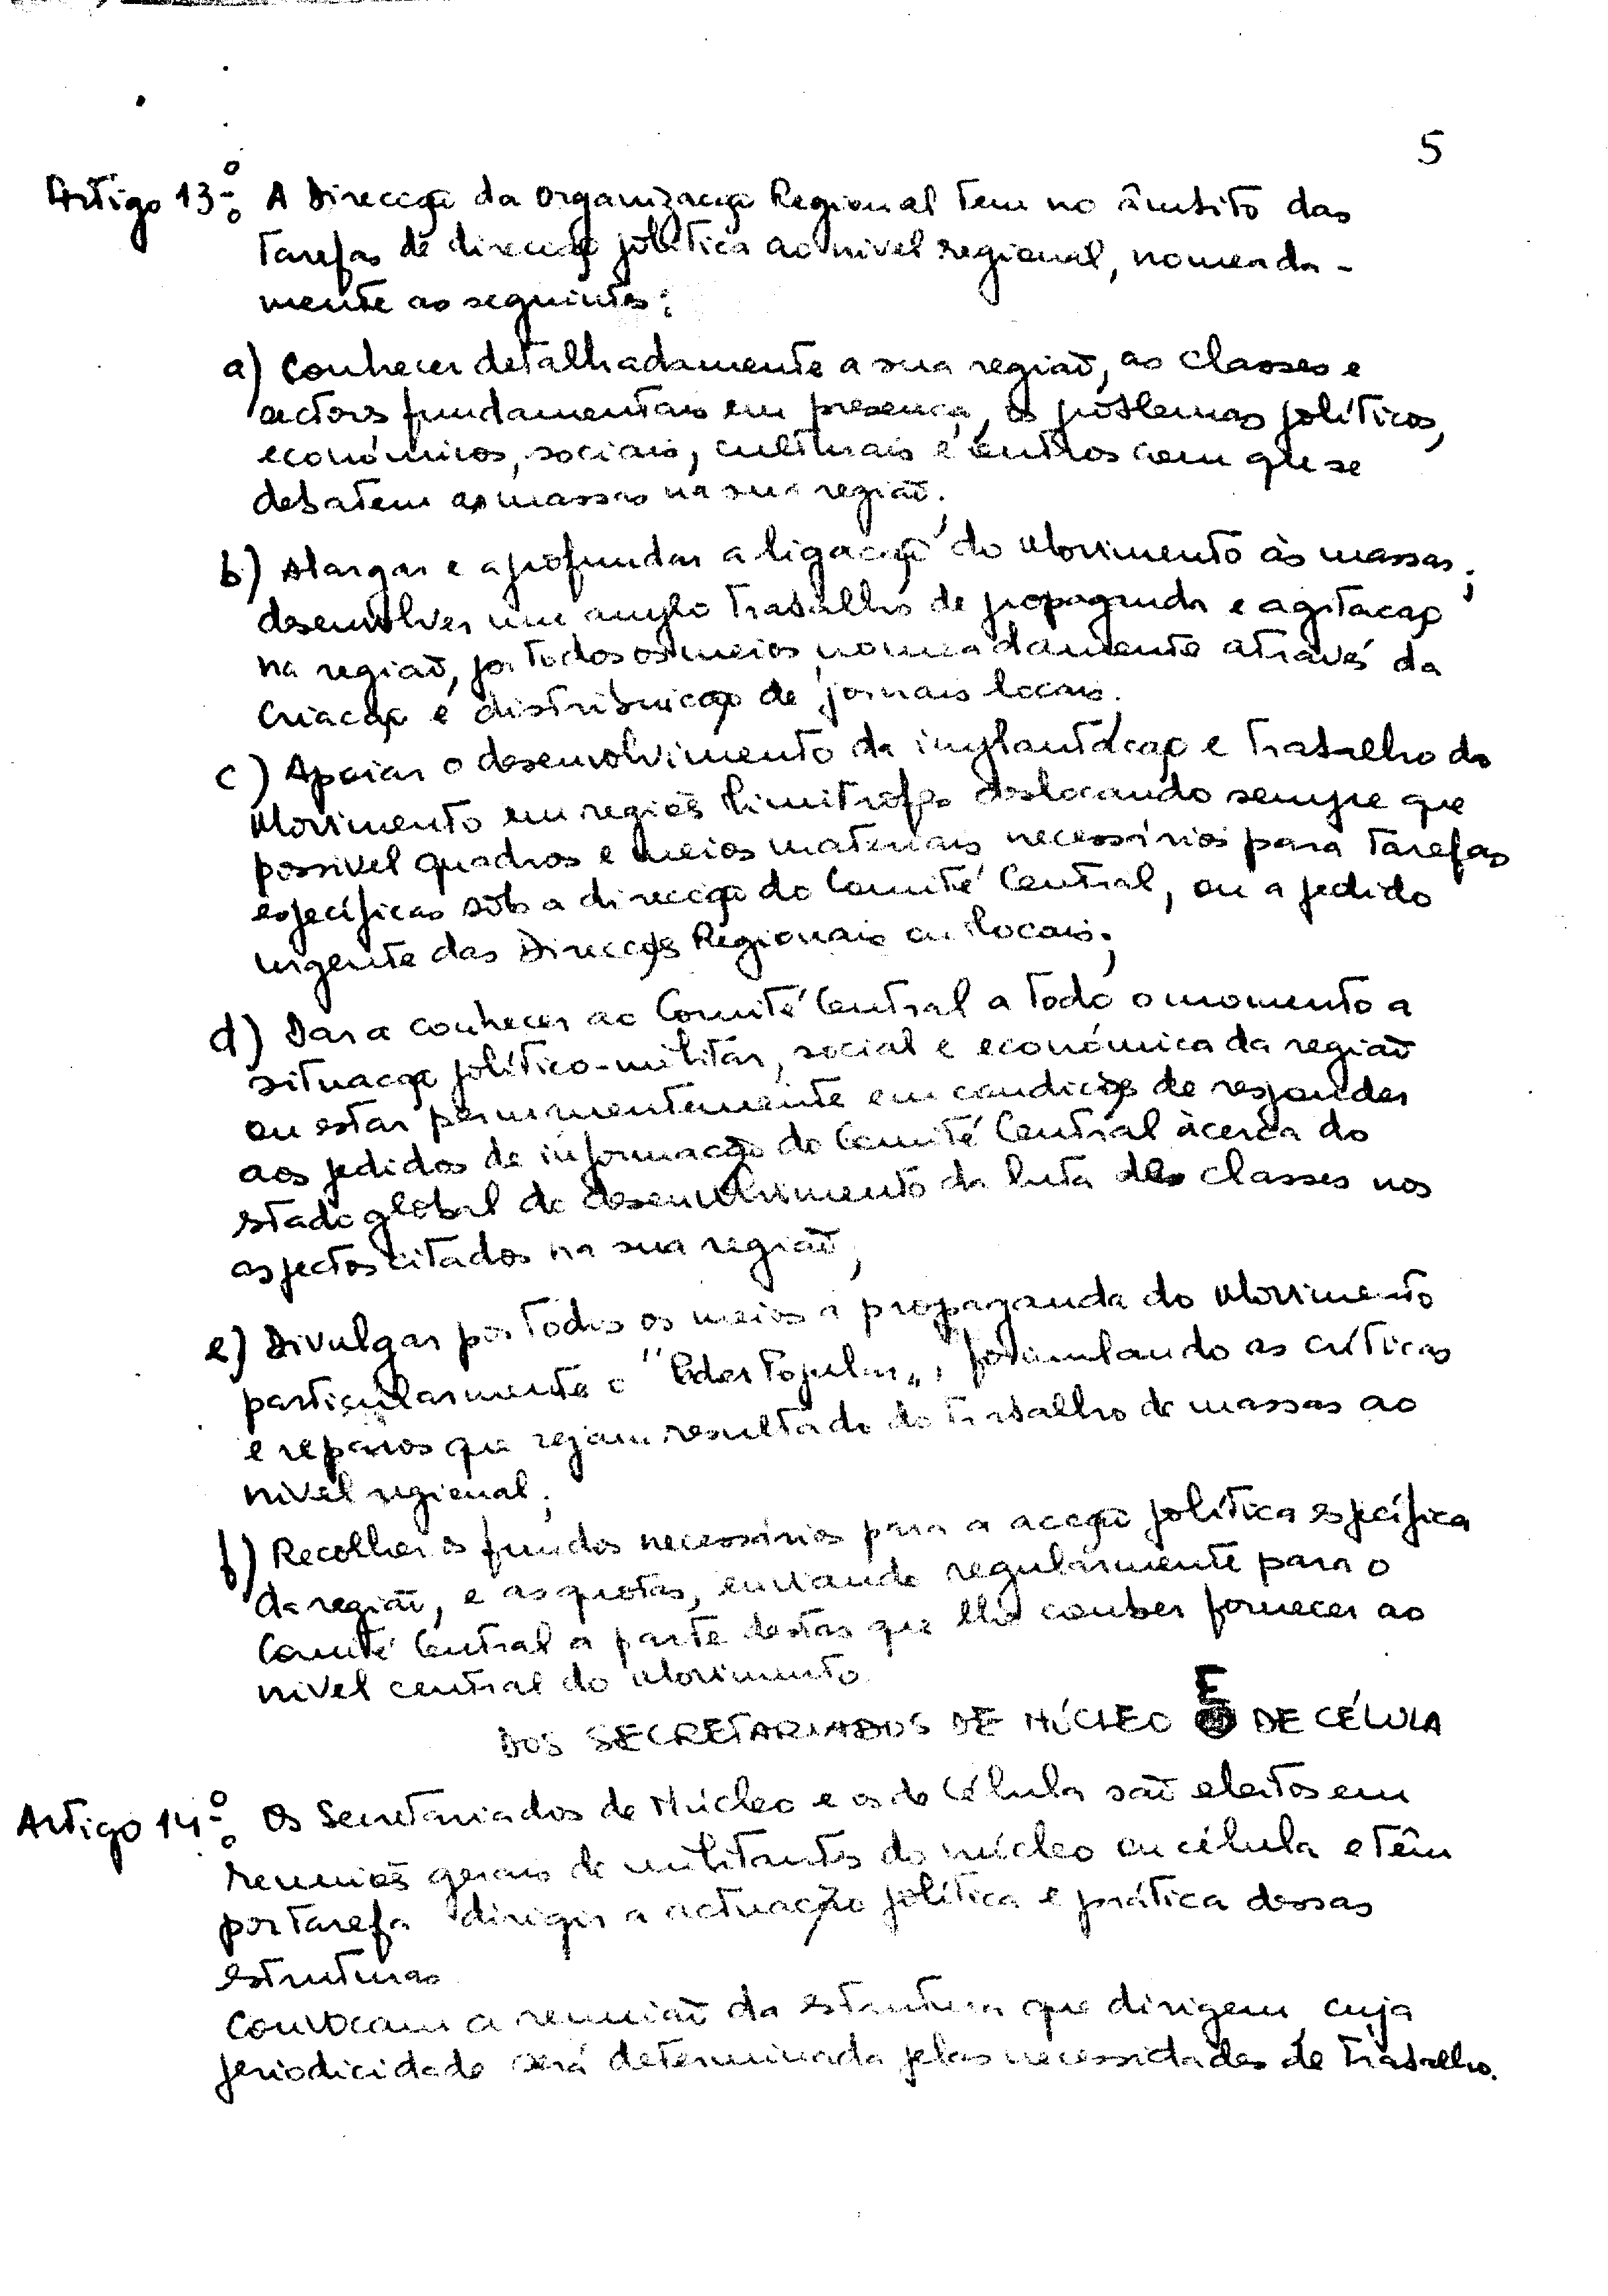 5
Artigo 13º: A Direcção da Organização Regional tem no âmbito das
tarefas de direcção política ao nível regional, nomeada-
mente as seguintes:
a) Conhecer detalhadamente a sua região, as classes e
actores fundamentais em presença, os problemas políticos,
económicos, sociais, culturais e outros com que se
debatem as massas na sua região;
b) Alargar e aprofundar a ligação do Movimento às massas;
desenvolver um amplo trabalho de propaganda e agitação
na região, por todos os meios nomeadamente através da
criação e distribuição de jornais locais;
c) Apoiar o desenvolvimento da implantação e trabalho do
Movimento em regiões limítrofes deslocando sempre que
possível quadros e meios materiais necessários para tarefas
específicas sob a direcção do Comité Central, ou a pedido
urgente das Direcções Regionais ou locais;
d) Dar a conhecer ao Comité Central a todo o momento a
situação político-militar, social e económica da região
ou estar permanentemente em condições de responder
aos pedidos de informação do Comité Central àcerca do
estado global do desenvolvimento da luta das classes nos
aspectos citados na sua região;
e) Divulgar por todos os meios a propaganda do Movimento
particularmente o "Poder Popular", formulando as críticas
e reparos que sejam resultado do trabalho de massas ao
nível regional;
f) Recolher os fundos necessários para a acção política específica
da região, e as quotas, enviando regularmente para o
Comité Central a parte destas que lhe couber fornecer ao
nível central do Movimento
DOS SECRETARIADOS DE NÚCLEO E DE CÉLULA
Artigo 14º: Os Secretariados de Núcleo e os de Célula são eleitos em
reuniões gerais de militantes do núcleo ou célula e têm
por tarefa dirigir a actuação política e prática dessas
estruturas
Convocam a reunião da estrutura que dirigem cuja
periodicidade será determinada pelas necessidades de trabalho.